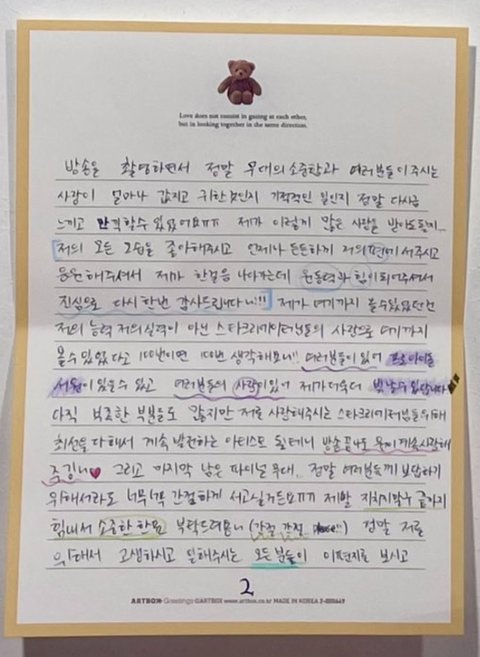 Love does not consist in gazing at each other,
but in looking together in the same direction.
방송을 촬영하면서 정말 무대의 소중함과 여러분들이 주시는
사랑이 얼마나 값지고 귀한것인지 기적적인 일인지 정말 다시금
느끼고 만끽할수 있었어요ㅠㅠ 제가 이렇게 많은 사랑을 받아도될지..
저의 모든 모습을 좋아해주시고 언제나 든든하게 저의편에 서주시고
응원해주셔서 제가 한걸음 나아가는데 원동력과 힘이되어주셔서
진심으로 다시한번 감사드립니다!!! 제가 여기까지 올수있었던건
저의 능력 저의실력이 아닌 스타크리에이터님들의 사랑으로 여기까지
올수있었다고 100번이면 100번 생각해요!! 여러분들이 있어
서원이 있을수 있고 여러분들의 사랑이 있어 제가더욱더 빛날수있답니다
아직 부족한 부분들도 많지만 저를 사랑해주시는 스타크리에이터님들을위해
최선을 다해서 계속 발전하는 아티스트 될테니 방송 끝나도 원이 계속사랑해
주깁니♥ 그리고 마지막 남은 파이널 무대.. 정말 여러분들께 보답하기
위해서라도 너무너무 간절하게 서고싶거든요ㅠㅠ 제발 지치지말구 끝까지
힘내서 소중한 한표 부탁드려용 (간절 간절 !!) 정말 저를
위해서 고생하시고 일해주시는 모든분들이 이편지를 보시고
2
ARTBOX Greetings ©ARTBOX www.artbox.co.kr MADE IN KOREA